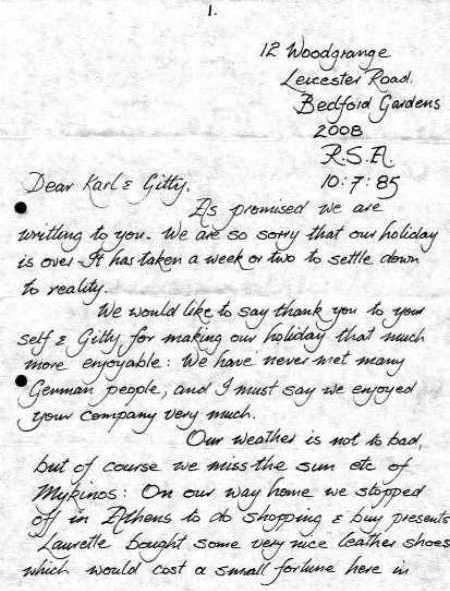 1.
12 Woodgrange
Leicester Road.
Bedford Gardens
2008
R.S.A.
Dear Karl & Gitty.
10:7:85
As promised we are
writting to you. We are so sorry that our holiday
is over. It has taken a week or two to settle down
to reality.
We would like to say thank you to your
self & Gitty for making our holiday that much
more enjoyable: We have never met many
German people, and I must say we enjoyed
your company very much.
Our weather is not to bad,
but of course we miss the sun etc of
Mykinos: On our way home we stopped
off in Athens to do shopping & buy presents
Laurette bought some very nice leather shoes
which would cost a small fortune here in